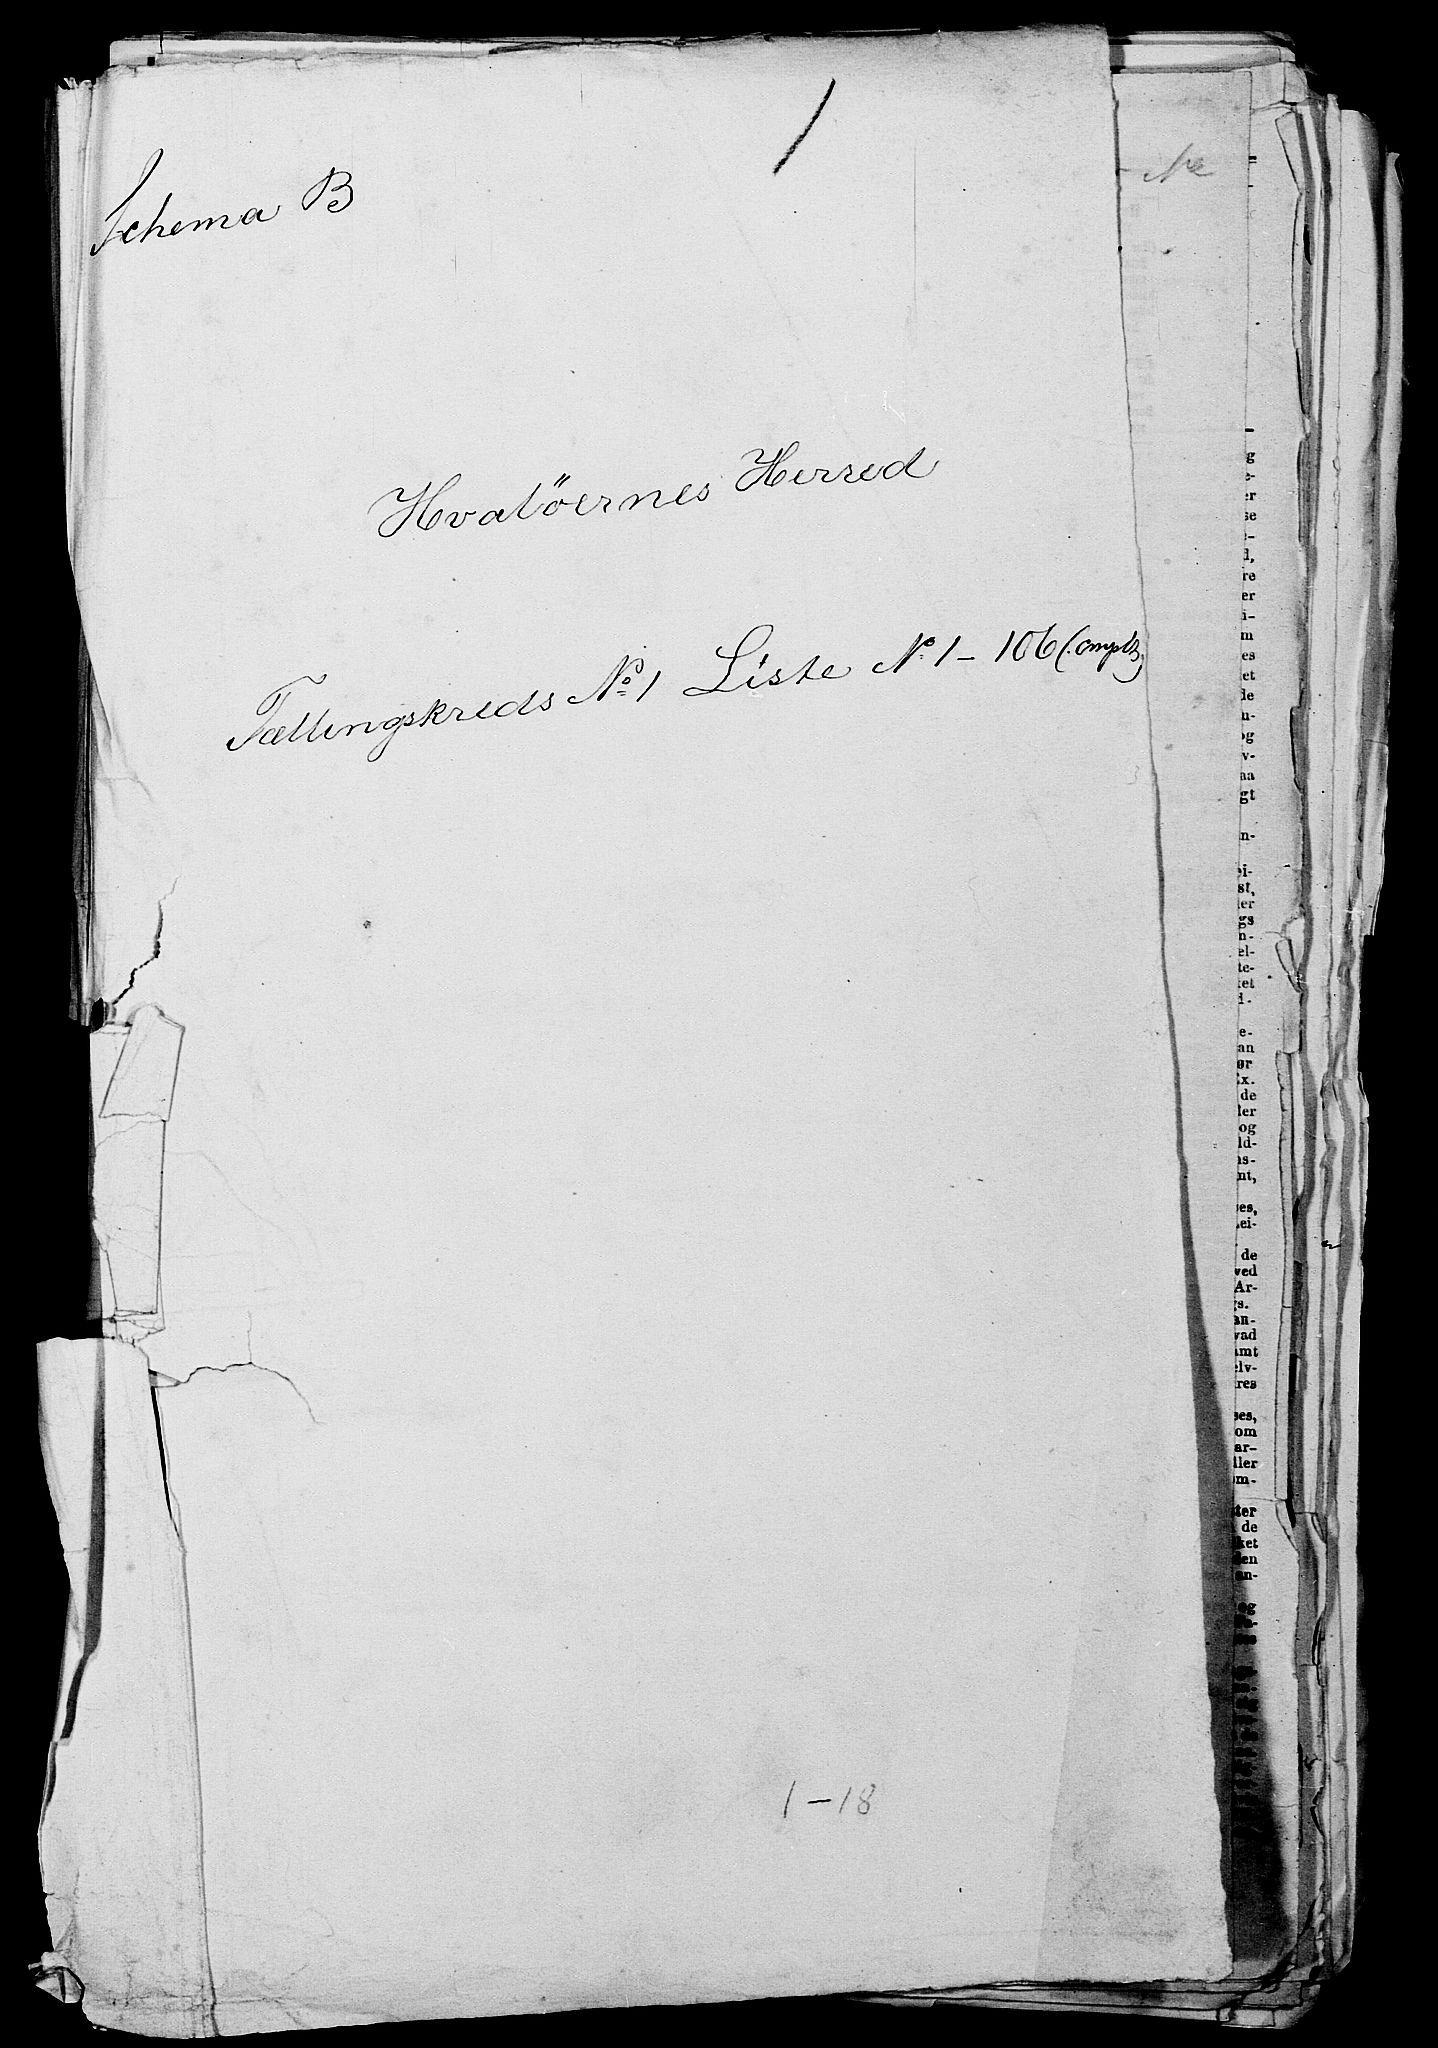 1
Schema B
Hvaløernes Herred
Tællingskreds No 1 Liste No 1 – 106 (complt)
1 – 18